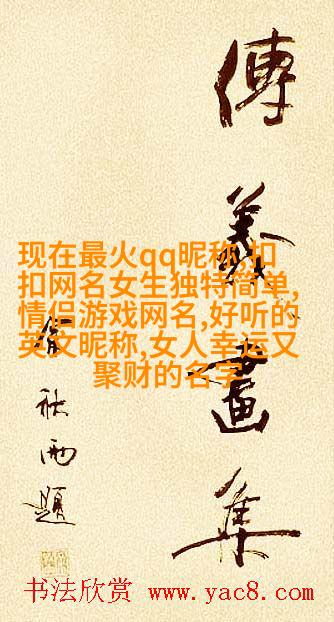 畫集
題
现在最火qq昵称,扣
扣网名女生独特简单,
情侣游戏网名,好听的
英文昵称,女人幸运又
聚财的名字
书法欣赏 www.yac8.com